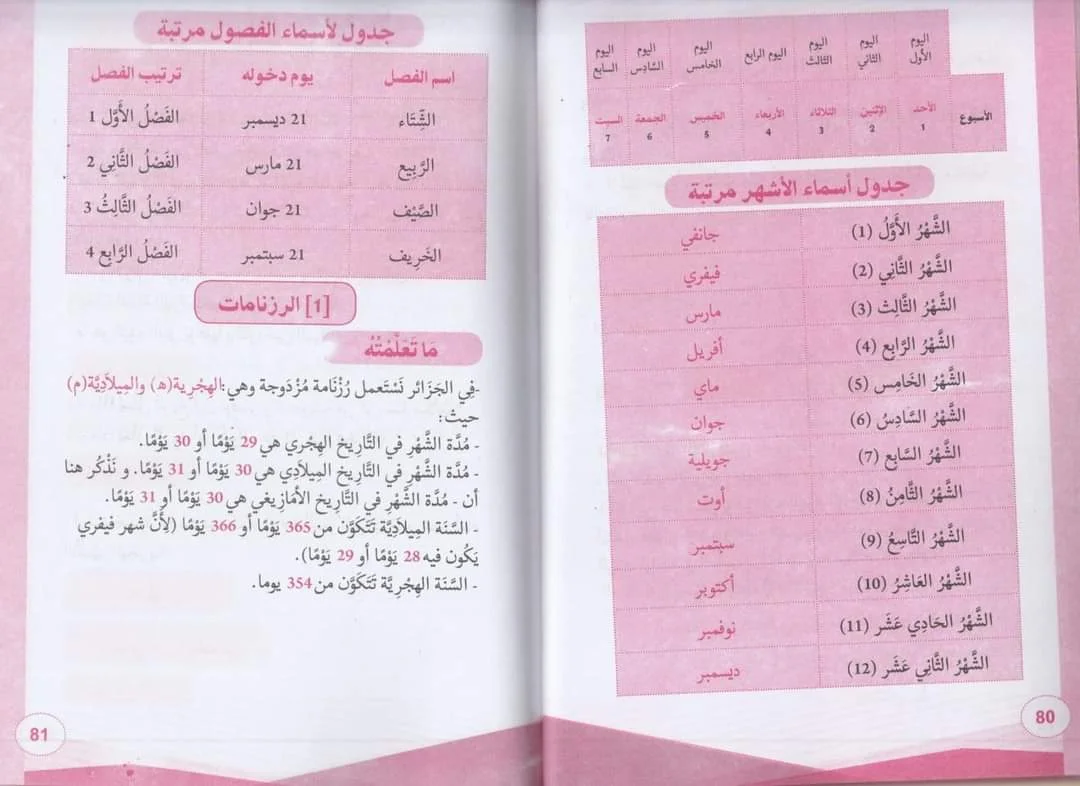 اليوم الأول اليوم الثاني اليوم الثالث اليوم الرابع اليوم الخامس اليوم السادس اليوم السابع
الأسبوع الأحد 1 الإثنين 2 الثلاثاء 3 الأربعاء 4 الخميس 5 الجمعة 6 السبت 7
جدول أسماء الأشهر مرتبة
الشَّهْرُ الأَوَّلُ (1) جانفي
الشَّهْرُ الثَّانِي (2) فيفري
الشَّهْرُ الثَّالِث (3) مارس
الشَّهْرُ الرَّابِع (4) أفريل
الشَّهْرُ الخَامِس (5) ماي
الشَّهْرُ السَّادِسُ (6) جوان
الشَّهْرُ السَّابِع (7) جويلية
الشَّهْرُ الثَّامِنُ (8) أوت
الشَّهْرُ التَّاسِعُ (9) سبتمبر
الشَّهْرُ العَاشِرُ (10) أكتوبر
الشَّهْرُ الحَادِي عَشَر (11) نوفمبر
الشَّهْرُ الثَّانِي عَشَر (12) ديسمبر
80
جدول لأسماء الفصول مرتبة
اسم الفصل يوم دخوله ترتيب الفصل
الشِّتَاء 21 ديسمبر الفَصْلُ الأَوَّل 1
الرَّبِيع 21 مارس الفَصْلُ الثَّانِي 2
الصَّيْف 21 جوان الفَصْلُ الثَّالِثُ 3
الخَرِيف 21 سبتمبر الفَصْلُ الرَّابِع 4
[1] الرزنامات
مَا تَعَلَّمْتُهُ
-فِي الجَزَائر نَسْتَعمل رُزْنَامة مُزْدَوجة وهي:الهِجْرِية(ه) والمِيلاَدِيَّة(م)
حيث:
- مُدَّة الشَّهْرِ في التَّارِيخ الهِجْري هي 29 يَوْمًا أو 30 يَوْمًا.
- مُدَّة الشَّهْرِ في التَّارِيخ المِيلَادِي هي 30 يَوْمًا أو 31 يَوْمًا. و نَذْكُر هنا
أن - مُدَّة الشَّهْرِ في التَّارِيخ الأمَازِيغي هي 30 يَوْمًا أو 31 يَوْمًا.
- السَّنَة المِيلاَدِيَّة تَتَكَوَّن من 365 يَوْمًا أو 366 يَوْمًا (لِأَنَّ شهر فيفري
يَكُون فيه 28 يَوْمًا أو 29 يَوْمًا).
- السَّنَة الهِجْرِيَّة تَتَكَوَّن من 354 يوما.
81